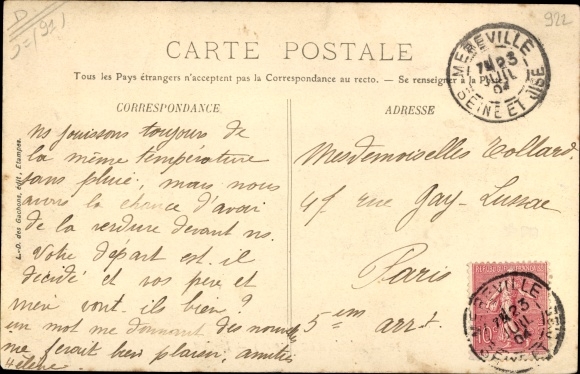 922
MEREVILLE
7H 23
JUIL
04
SEINE ET OISE
CARTE POSTALE
Tous les Pays étrangers n'acceptent pas la Correspondance au recto. — Se renseigner à la Poste
CORRESPONDANCE
ns jouissons toujours de
la même température
sans pluie, mais nous
avons la chance d'avoir
de la verdure devant ns.
Votre départ est-il
décidé et vos père et
mère vont-ils bien ?
un mot me donnant des nouvelles
me ferait bien plaisir, amitiés
L.-D. des Gachons, édit., Etampes.
ADRESSE
Mesdemoiselles Collard
rue Gay-Lussac
Paris
5em arrt
REPUBLIQUE FRANÇAISE
10
MEREVILLE
7H 23
JUIL
04
SEINE ET OISE